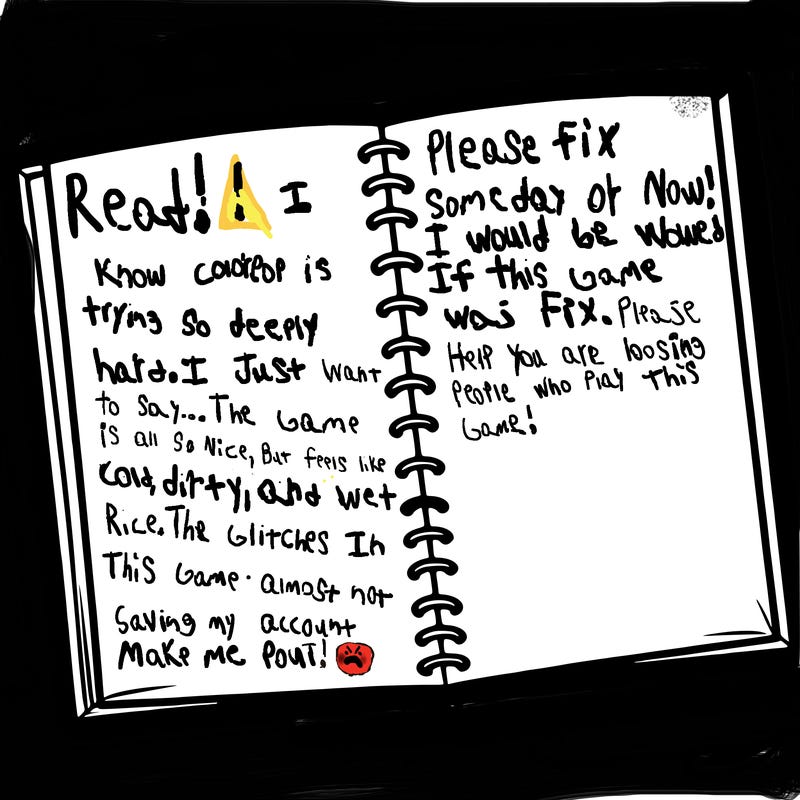 Read! I
Know is
trying so deeply
hard. I Just want
to say...The Game
is all so Nice, But feels like
Cold, dirty, and wet
Rice. The Glitches In
This Game. almost not
Saving my account
Make me Pout!
Please Fix
Someday or Now!
I would be Wowed
If this Game
was Fix. Please
Help You are loosing
People who Play This
Game!